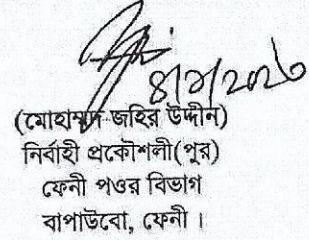 (মোহাম্মদ জহির উদ্দীন)
নির্বাহী প্রকৌশলী(পুর)
ফেনী পওর বিভাগ
বাপাউবো, ফেনী।